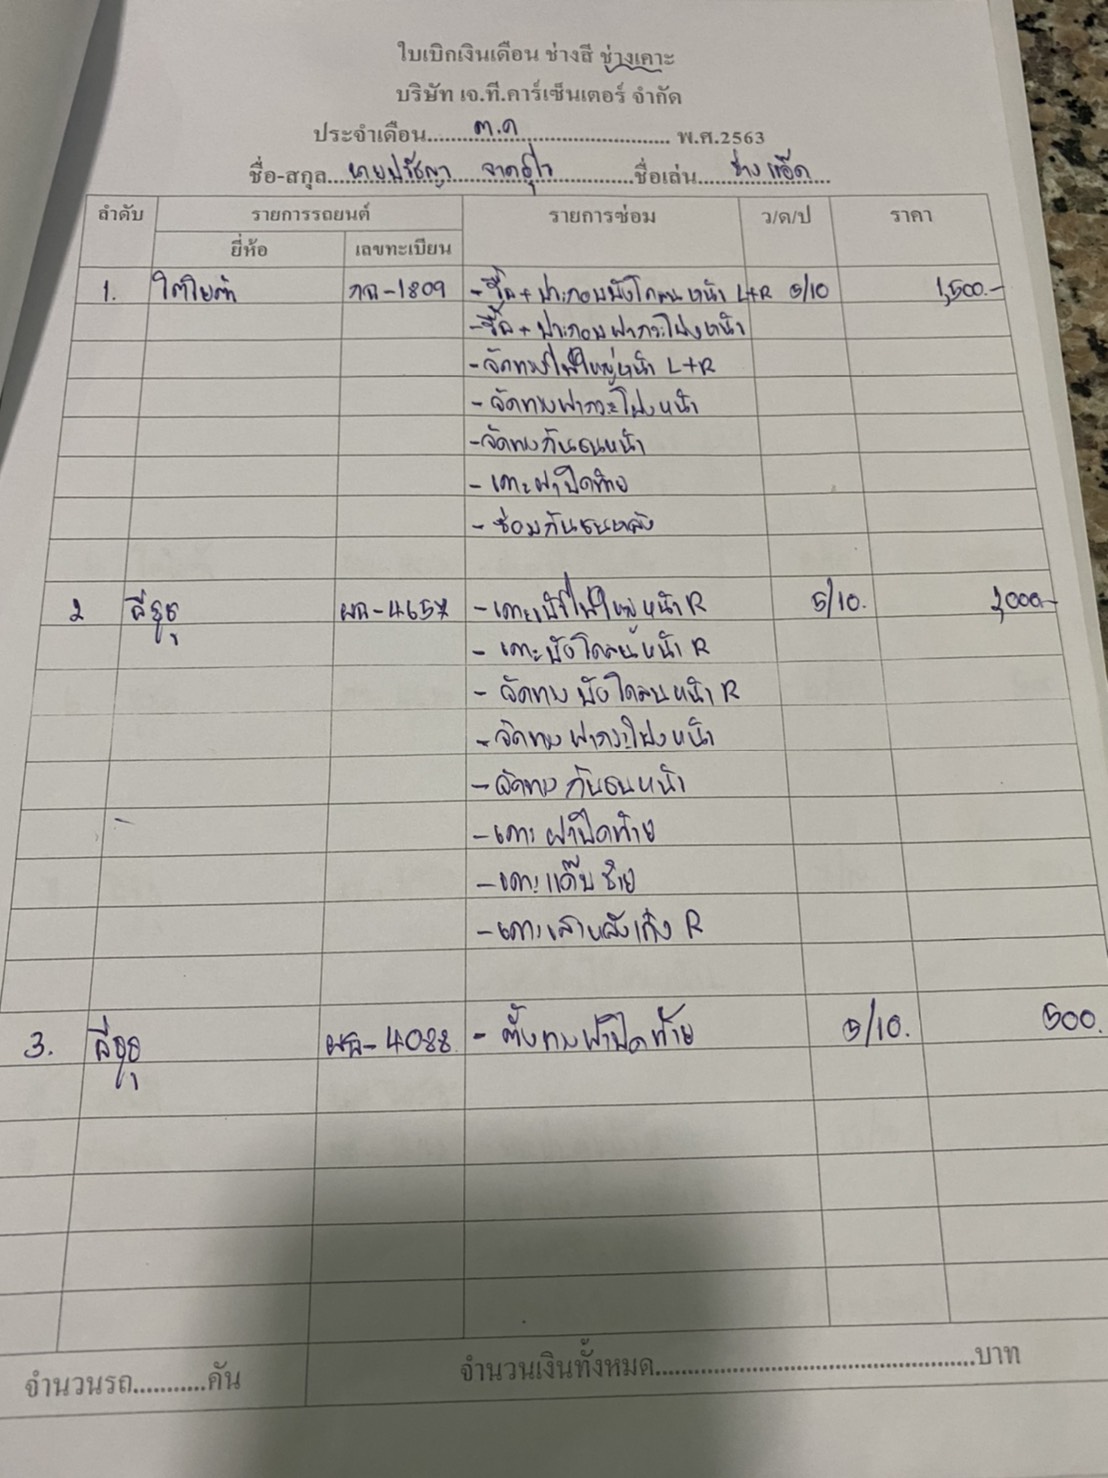 ใบเบิกเงินเดือน ช่างสี ช่างเคาะ
บริษัท เจ.ที.คาร์เซ็นเตอร์ จำกัด
ประจำเดือน......ต.ค.......... พ.ศ.2563
ชื่อ-สกุล...นายปรัชญา.......ชื่อเล่น....ช่างแอ๊ด...
ลำดับ รายการรถยนต์ รายการซ่อม ว/ด/ป ราคา
ยี่ห้อ เลขทะเบียน
1. โตโยต้า กฉ-1809 -รื้อ+ประกอบบังโคลนหน้า L+R 5/10 1,500.-
-รื้อ+ประกอบฝากระโปรงหน้า
-จัดทรงไฟใหญ่หน้า L+R
-จัดทรงฝากระโปรงหน้า
-จัดทรงกันชนหน้า
-เคาะฝาปิดท้าย
-ซ่อมกันชนหลัง
2 อีซูซุ ผฉ-4657 -เคาะเบ้าไฟใหญ่หน้า R 5/10. 2,000.-
-เคาะบังโคลนหน้า R
-จัดทรงบังโคลนหน้า R
-จัดทรงฝากระโปรงหน้า
-จัดทรงกันชนหน้า
-เคาะฝาปิดท้าย
-เคาะแค๊บซ้าย
-เคาะเสาหลังเก๋ง R
3. อีซูซุ 4088 -ตั้งทรงฝาปิดท้าย 5/10. 500.
จำนวนรถ...........คัน จำนวนเงินทั้งหมด...............................................บาท